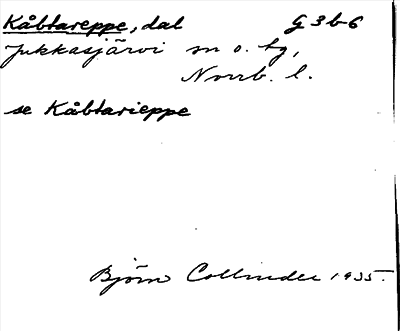 Kåbtareppe, dal G 3 b-6
Jukkasjärvi sn o. tg,
Norrb. l.
se Kåbtarieppe
Björn Collinder 1935.